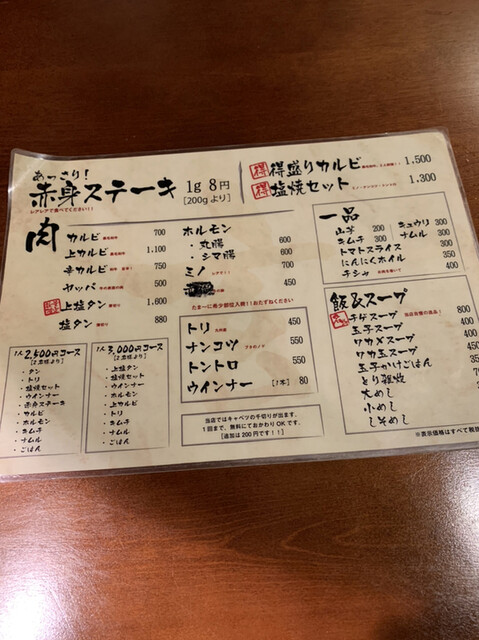 あっさり！
赤身ステーキ 1g 8円
[200gより]
レアレアで食べてください！！
得 得盛りカルビ 1,500
得 塩焼セット 1,300
肉
カルビ 700
上カルビ 1,100
辛カルビ 750
ヤッパ 500
上塩タン 厚切り 1,600
塩タン 薄切り 880
ホルモン
・丸腸 600
・シマ腸 600
ミノ 700
450
たまーに希少部位入荷！！おたずねください
トリ 450
ナンコツ 550
トントロ 550
ウインナー [1本] 80
一品
山芋 200
キムチ 300
トマトスライス 300
にんにくホイル 350
チシャ 400
キュウリ 300
ナムル 300
飯&スープ
チゲスープ 800
玉子スープ 400
ワカメスープ 400
ワカ玉スープ 450
玉子かけごはん 350
とり雑炊
大めし
小めし
しそめし
1人 2,500円コース
[2名様より]
・タン
・トリ
・塩焼セット
・ウインナー
・赤身ステーキ
・カルビ
・ホルモン
・キムチ
・ナムル
・ごはん
1人 3,000円コース
[2名様より]
・上塩タン
・塩焼セット
・ウインナー
・ホルモン
・上カルビ
・トリ
・キムチ
・ナムル
・ごはん
当店ではキャベツの千切りが出ます。
1回まで、無料にておかわりOKです。
[追加は200円です！！]
※表示価格はすべて税抜